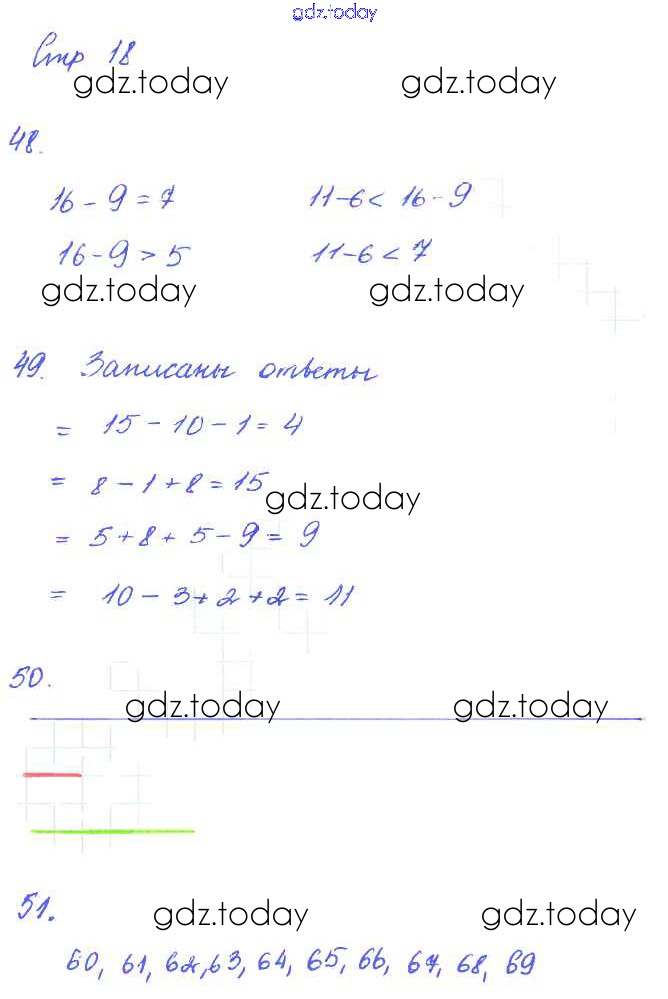 gdz.today
Стр 18
gdz.today gdz.today
48.
16 - 9 = 7 11-6 < 16 - 9
16 - 9 > 5 11-6 < 7
gdz.today gdz.today
49. Записаны ответы
= 15 - 10 - 1 = 4
= 8 - 1 + 8 = 15
gdz.today
= 5 + 8 + 5 - 9 = 9
= 10 - 3 + 2 + 2 = 11
50.
gdz.today gdz.today
51.
gdz.today gdz.today
60, 61, 62, 63, 64, 65, 66, 67, 68, 69